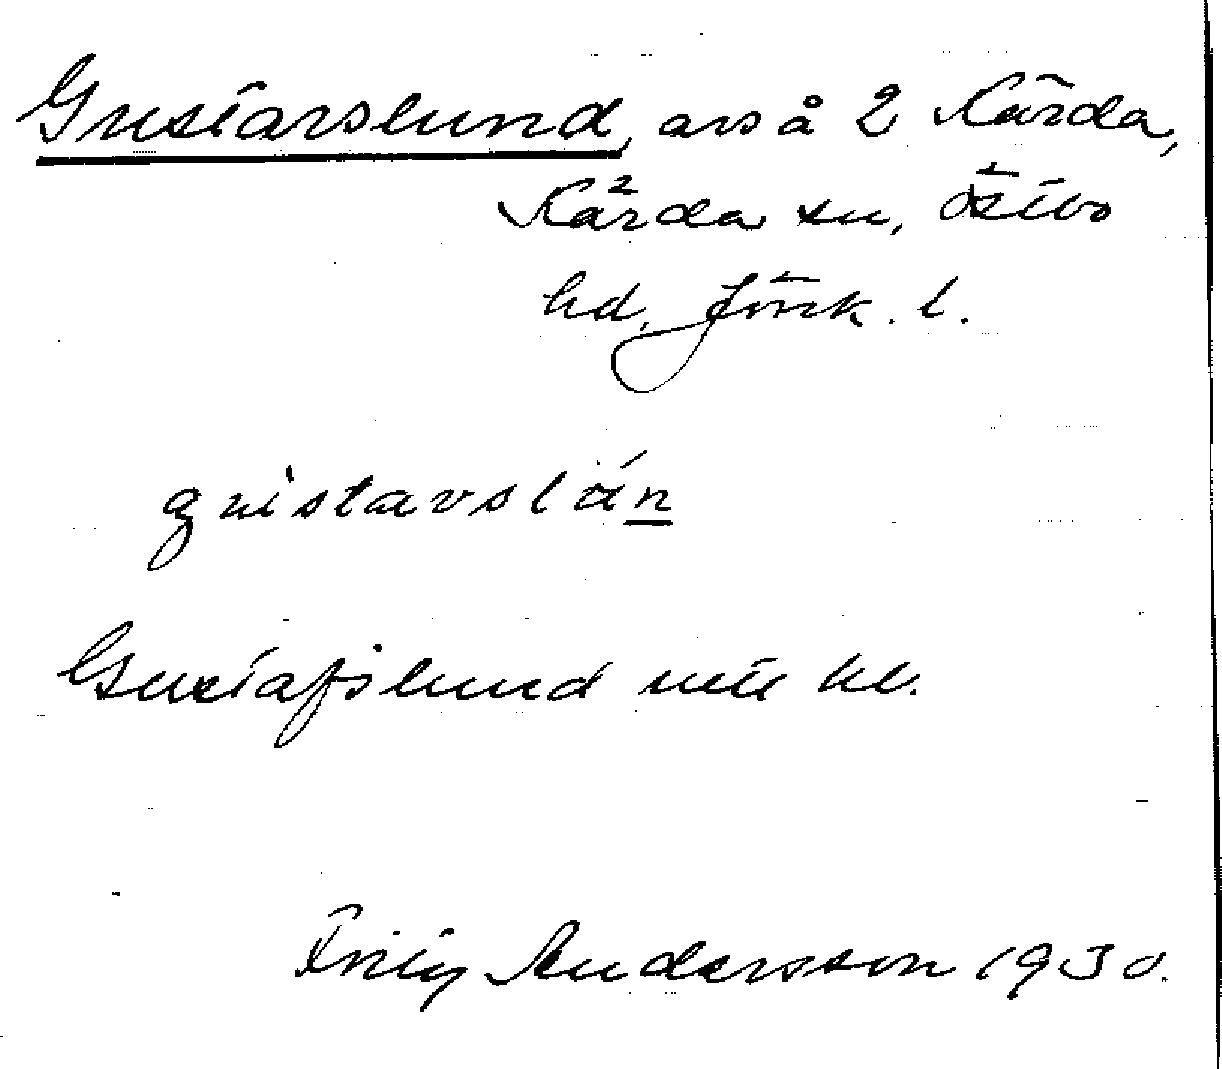 Gustavslund, avs å 2 Kärda,
Kärda sn, Östbo
hd, Jönk. l.
gustavslán
Gustafslund
Fritz Andersson 1930.